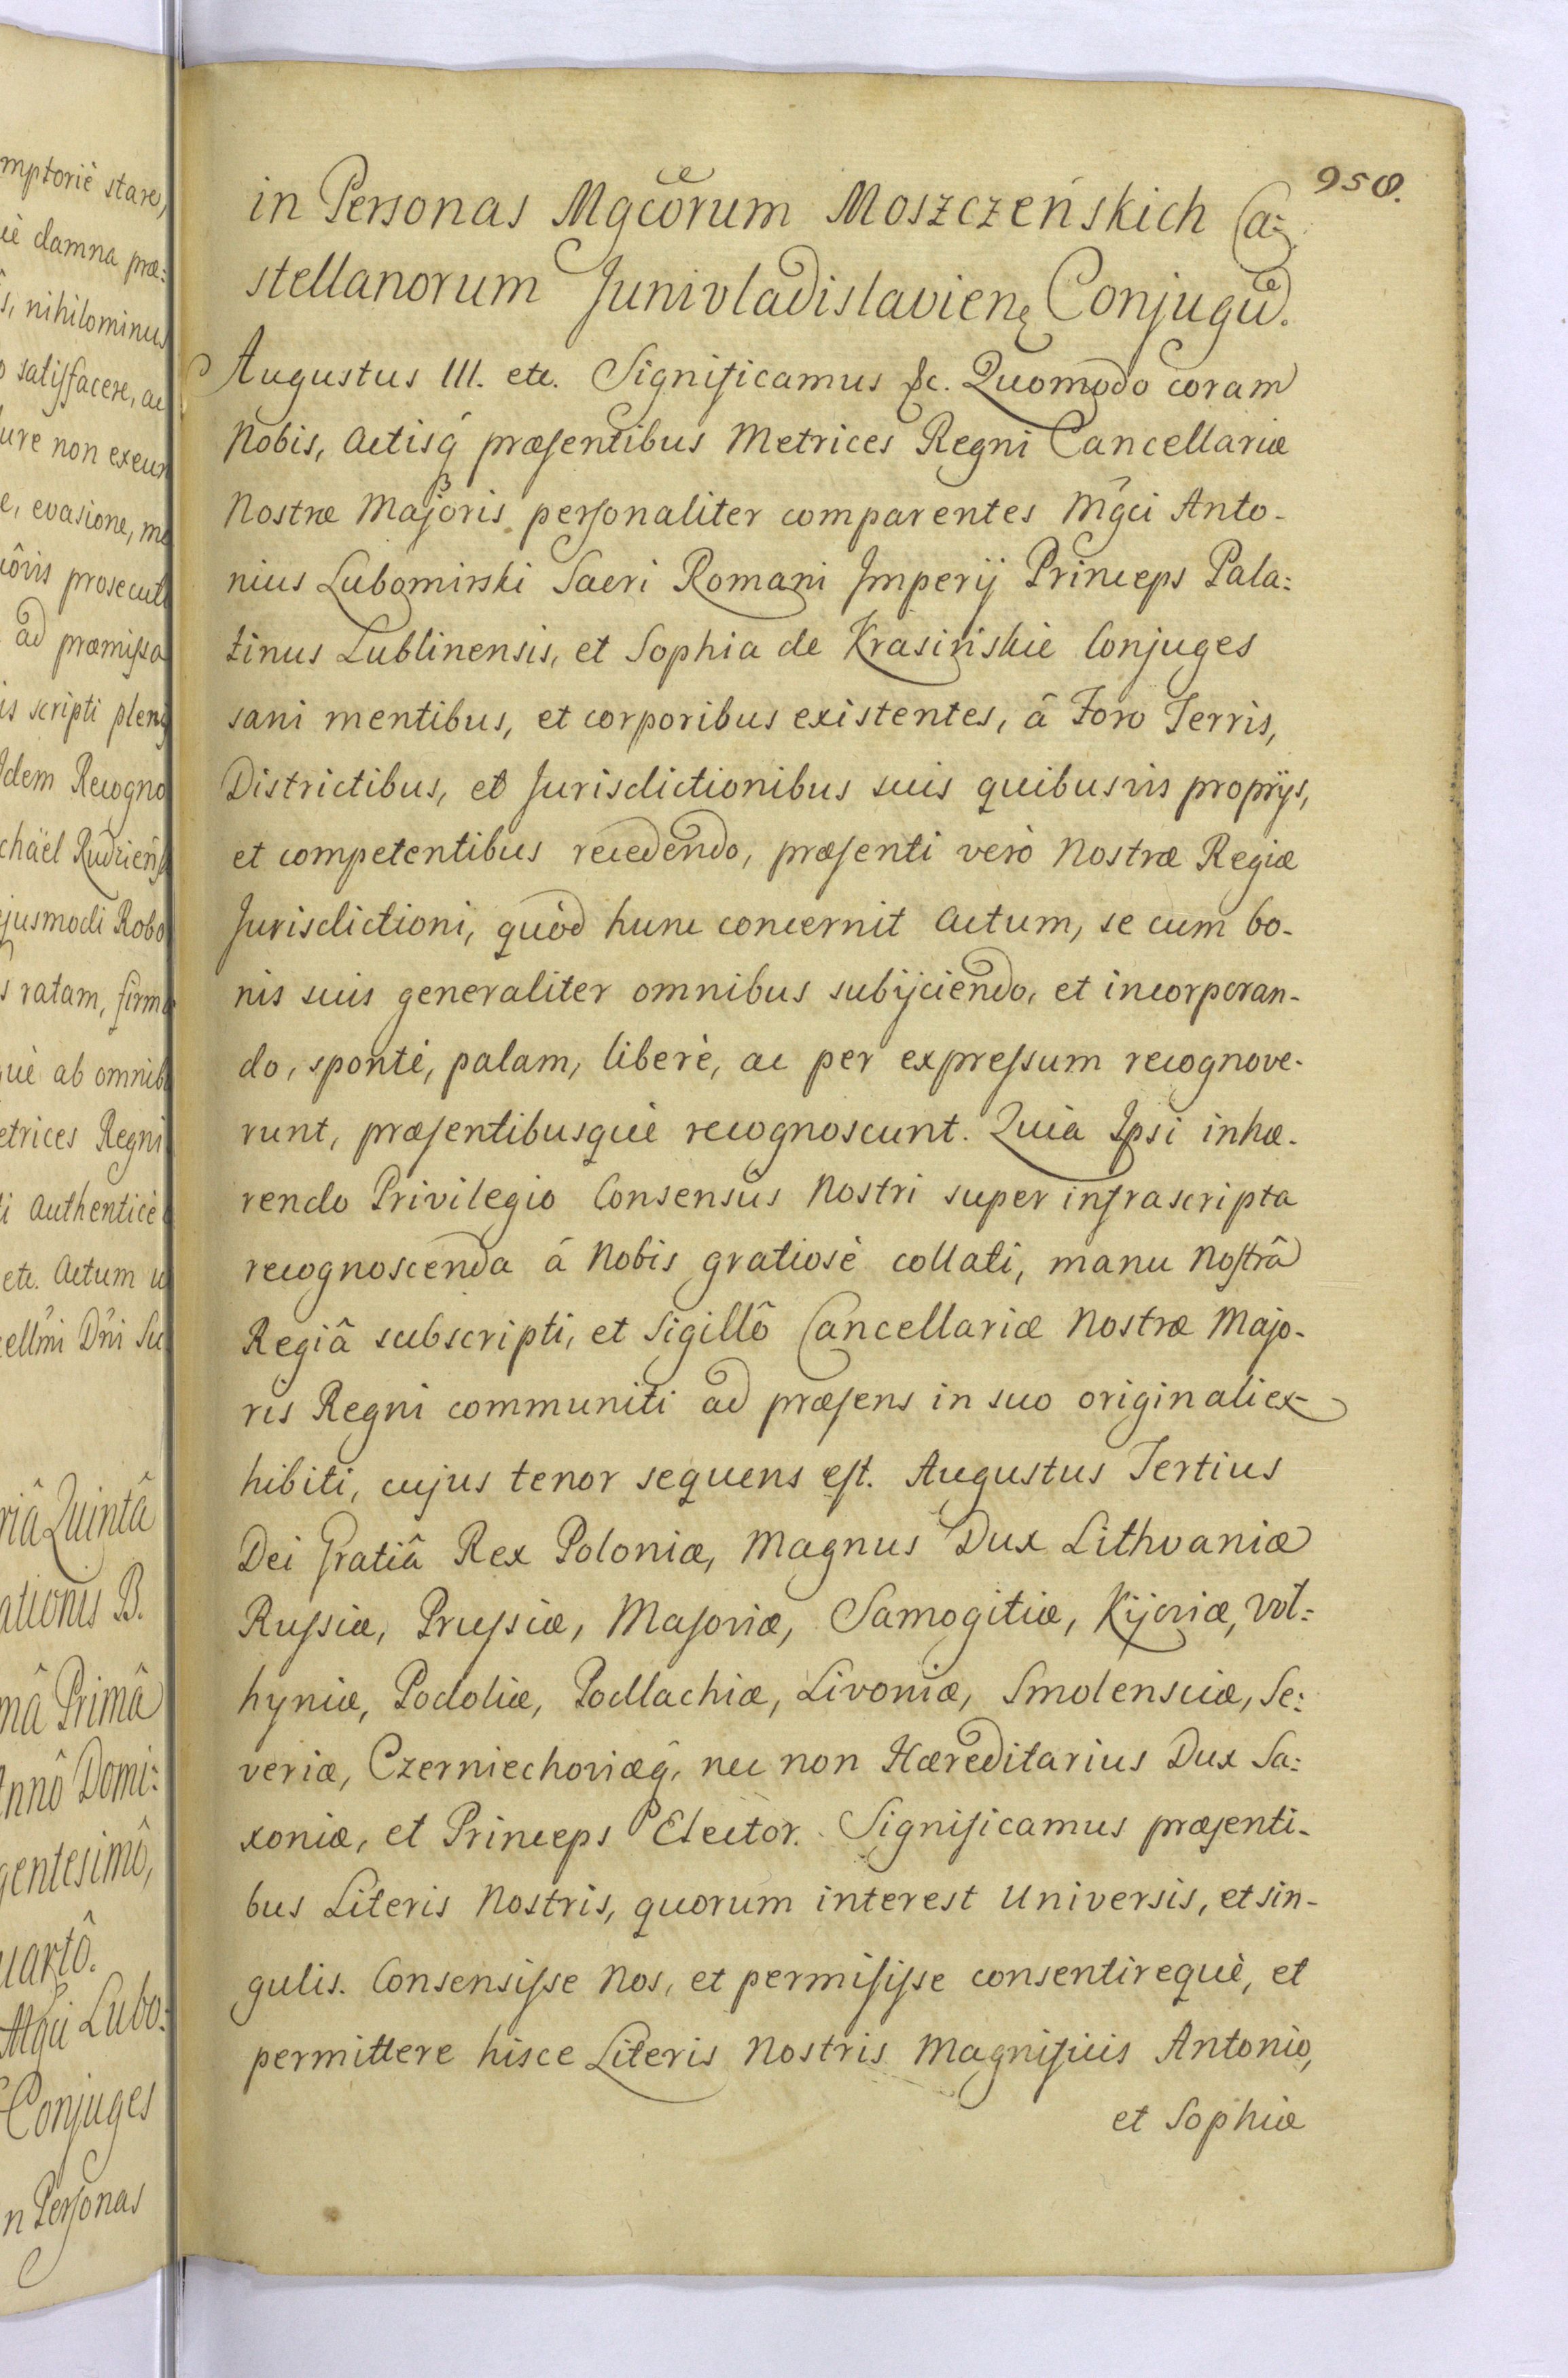 mptoriè stare,
iè damna præ:
s, nihilominus
o satisfacere, ac
ure non exeun
e, evasione, mo
iôris prosecuti
ad præmissa
is scripti pleni
Idem Recogno
chaël Rudzieńs
ejusmodi Robo
s ratam, firma
què ab omnib
etrices Regni
ti Authenticè
etc. Actum u
cellm̃i Dñi Su
riâ Quintâ
ationis B.
mâ Primâ
Annô Domi:
gentesimô,
uartô.
Mgci Lubo:
Conjuges
in Personas
958.
in Personas Mgcõrum Moszczeńskich Ca:
stellanorum Junivladislavienę Conjugũ.
Augustus III. etc. Significamus &c. Quomodo coram
Nobis, Actisq̃ præsentibus Metrices Regni Cancellariæ
Nostræ Majoris personaliter comparentes Mg̃ci Anto-
nius Lubomirski Sacri Romani Imperij Princeps Pala:
tinus Lublinensis, et Sophia de Krasińskie Conjuges
sani mentibus, et corporibus existentes, â Foro Terris,
Districtibus, et Jurisdictionibus suis quibusvis proprijs,
et competentibus recedendo, præsenti verò Nostræ Regiæ
Jurisdictioni, quòd hunc concernit Actum, se cum bo-
nis suis generaliter omnibus subijciendo, et incorporan-
do, spontè, palam, liberè, ac per expressum recognove-
runt, præsentibusquè recognoscunt. Quia Ipsi inhæ-
rendo Privilegio Consensûs Nostri super infrascripta
recognoscenda â Nobis gratiosè collati, manu Nostrâ
Regiâ subscripti, et Sigillô Cancellariæ Nostræ Majo-
ris Regni communiti ad præsens in suo originali ex-
hibiti, cujus tenor sequens est. Augustus Tertius
Dei Gratiâ Rex Poloniæ, Magnus Dux Lithvaniæ
Russiæ, Prussiæ, Masoviæ, Samogitiæ, Kijoviæ, Vol:
hyniæ, Podoliæ, Podlachiæ, Livoniæ, Smolensciæ, Se:
veriæ, Czerniechoviæq̃, nec non Hæreditarius Dux Sa:
xoniæ, et Princeps Elector. Significamus præsenti-
bus Literis Nostris, quorum interest Universis, et sin-
gulis. Consensisse Nos, et permisisse consentirequè, et
permittere hisce Literis Nostris Magnificis Antonio,
et Sophiæ